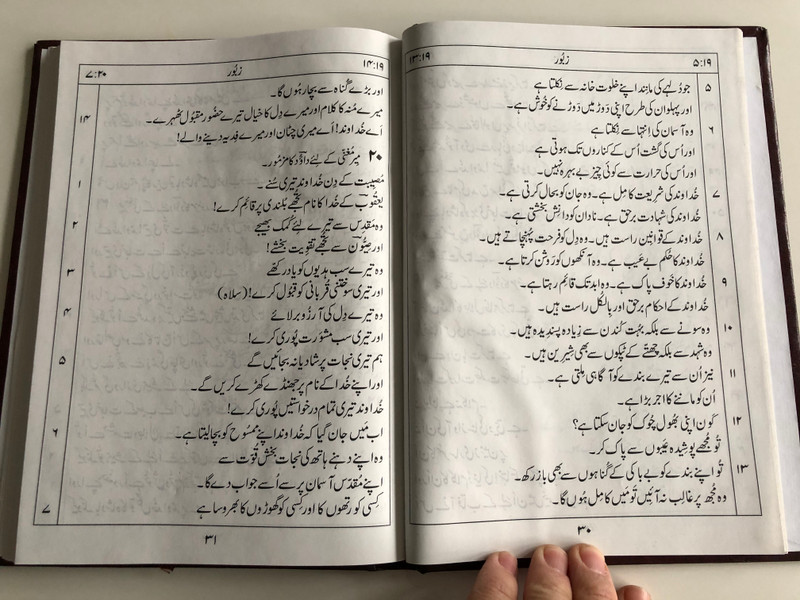 ۵:۱۹ زبُور ۱۳:۱۹
۵ جو دُلہے کی مانِند اپنے خلوت خانہ سے نِکلتا ہے
اور پہلوان کی طرح اپنی دَوڑ میں دَوڑنے کو خُوش ہے۔
۶ وہ آسمان کی اِنتہا سے نِکلتا ہے
اور اُس کی گشت اُس کے کناروں تک ہوتی ہے
اور اُس کی حرارت سے کوئی چِیز بے بہرہ نہیں۔
۷ خُداوند کی شرِیعت کامِل ہے۔ وہ جان کو بحال کرتی ہے۔
خُداوند کی شہادت برحق ہے۔ نادان کو دانِش بخشتی ہے۔
۸ خُداوند کے قوانِین راست ہیں۔ وہ دِل کو فرحت پُہنچاتے ہیں۔
خُداوند کا حُکم بے عَیب ہے۔ وہ آنکھوں کو رَوشن کرتا ہے۔
۹ خُداوند کا خَوف پاک ہے۔ وہ ابد تک قائِم رہتا ہے۔
خُداوند کے احکام برحق اور بِالکُل راست ہیں۔
۱۰ وہ سونے سے بلکہ بُہت کُندن سے زِیادہ پسندِیدہ ہیں۔
وہ شہد سے بلکہ چھتّے کے ٹپکوں سے بھی شِیرین ہیں۔
۱۱ نیز اُن سے تیرے بندے کو آگاہی مِلتی ہے۔
اُن کو ماننے کا اجر بڑا ہے۔
۱۲ کَون اپنی بُھول چُوک کو جان سکتا ہے؟
تُو مُجھے پوشِیدہ عَیبوں سے پاک کر۔
۱۳ تُو اپنے بندے کو بے باکی کے گُناہوں سے بھی باز رکھ۔
وہ مُجھ پر غالِب نہ آئیں تو مَیں کامِل ہُوں گا۔
۳۰
۱۴:۱۹ زبُور ۷:۲۰
اور بڑے گُناہ سے بچا رہُوں گا۔
۱۴ میرے مُنہ کا کلام اور میرے دِل کا خیال تیرے حضُور مقبُول ٹھہرے۔
اَے خُداوند! اَے میری چٹان اور میرے فِدیہ دینے والے!
۲۰ میر مُغنّی کے لِئے داؤد کا مزمُور۔
۱ مُصِیبت کے دِن خُداوند تیری سُنے۔
یعقُوب کے خُدا کا نام تُجھے بُلندی پر قائِم کرے!
۲ وہ مَقدِس سے تیرے لِئے کُمک بھیجے
اور صِیُّون سے تُجھے تقوِیت بخشے!
۳ وہ تیرے سب ہدیوں کو یاد رکھّے
اور تیری سوختنی قُربانی کو قبُول کرے! (سِلاہ)
۴ وہ تیرے دِل کی آرزُو بر لائے
اور تیری سب مشورَت پُوری کرے!
۵ ہم تیری نجات پر شادیانہ بجائیں گے
اور اپنے خُدا کے نام پر جھنڈے کھڑے کریں گے۔
خُداوند تیری تمام درخواستیں پُوری کرے!
۶ اب مَیں جان گیا کہ خُداوند اپنے ممسُوح کو بچا لیتا ہے۔
وہ اپنے دہنے ہاتھ کی نجات بخش قُوّت سے
اپنے مُقدّس آسمان پر سے اُسے جواب دے گا۔
۷ کِسی کو رتھوں کا اور کِسی کو گھوڑوں کا بھروسا ہے
۳۱